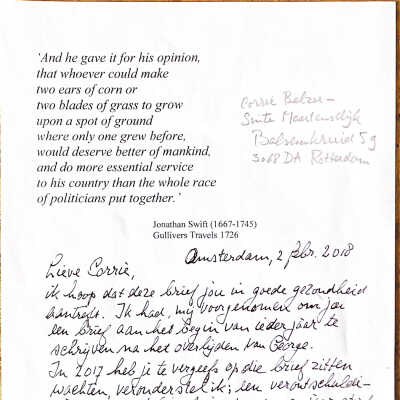 'And he gave it for his opinion,
that whoever could make
two ears of corn or
two blades of grass to grow
upon a spot of ground
where only one grew before,
would deserve better of mankind,
and do more essential service
to his country than the whole race
of politicians put together.'
Jonathan Swift (1667-1745)
Gullivers Travels 1726
Corrie
Balsemkruid 59
3068 DA Rotterdam
Amsterdam, 2 febr. 2018
Lieve Corrie,
ik hoop dat deze brief jou in goede gezondheid
aantreft. Ik had mij voorgenomen om jou
een brief aan het begin van ieder jaar te
schrijven na het overlijden van George.
In 2017 heb je te vergeefs op die brief zitten
wachten, veronderstel ik; een verontschuldi-